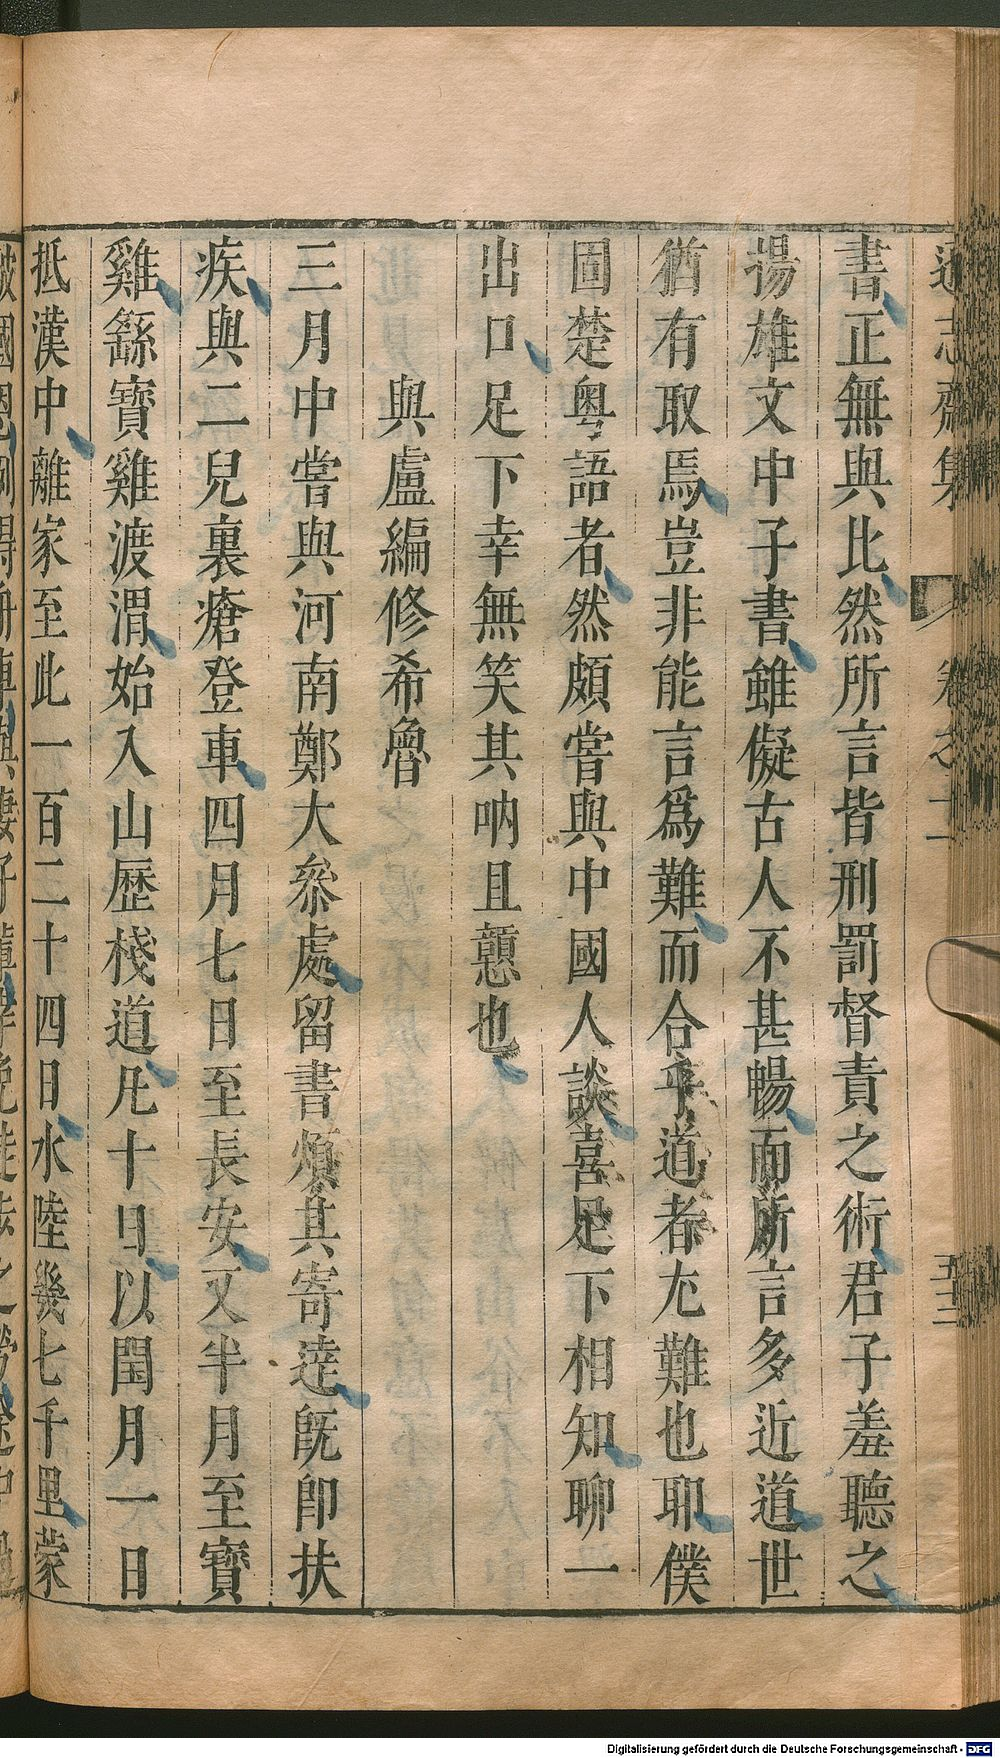 遜志齋集 卷之十一 五十二
書正無與比然所言皆刑罰督責之術君子羞聽之
揚雄文中子書雖儗古人不甚暢而所言多近道世
猶有取焉豈非能言爲難而合乎道者尤難也耶僕
固楚粤語者然頗嘗與中國人談喜足下相知聊一
出口足下幸無笑其吶且戇也
與盧編修希魯
三月中嘗與河南鄭大叅處留書煩其寄達旣卽扶
疾與二兒裏瘡登車四月七日至長安又半月至寶
雞繇寶雞渡渭始入山歷棧道凡十日以閏月一日
抵漢中離家至此一百二十四日水陸幾七千里蒙
Digitalisierung gefördert durch die Deutsche Forschungsgemeinschaft - DFG